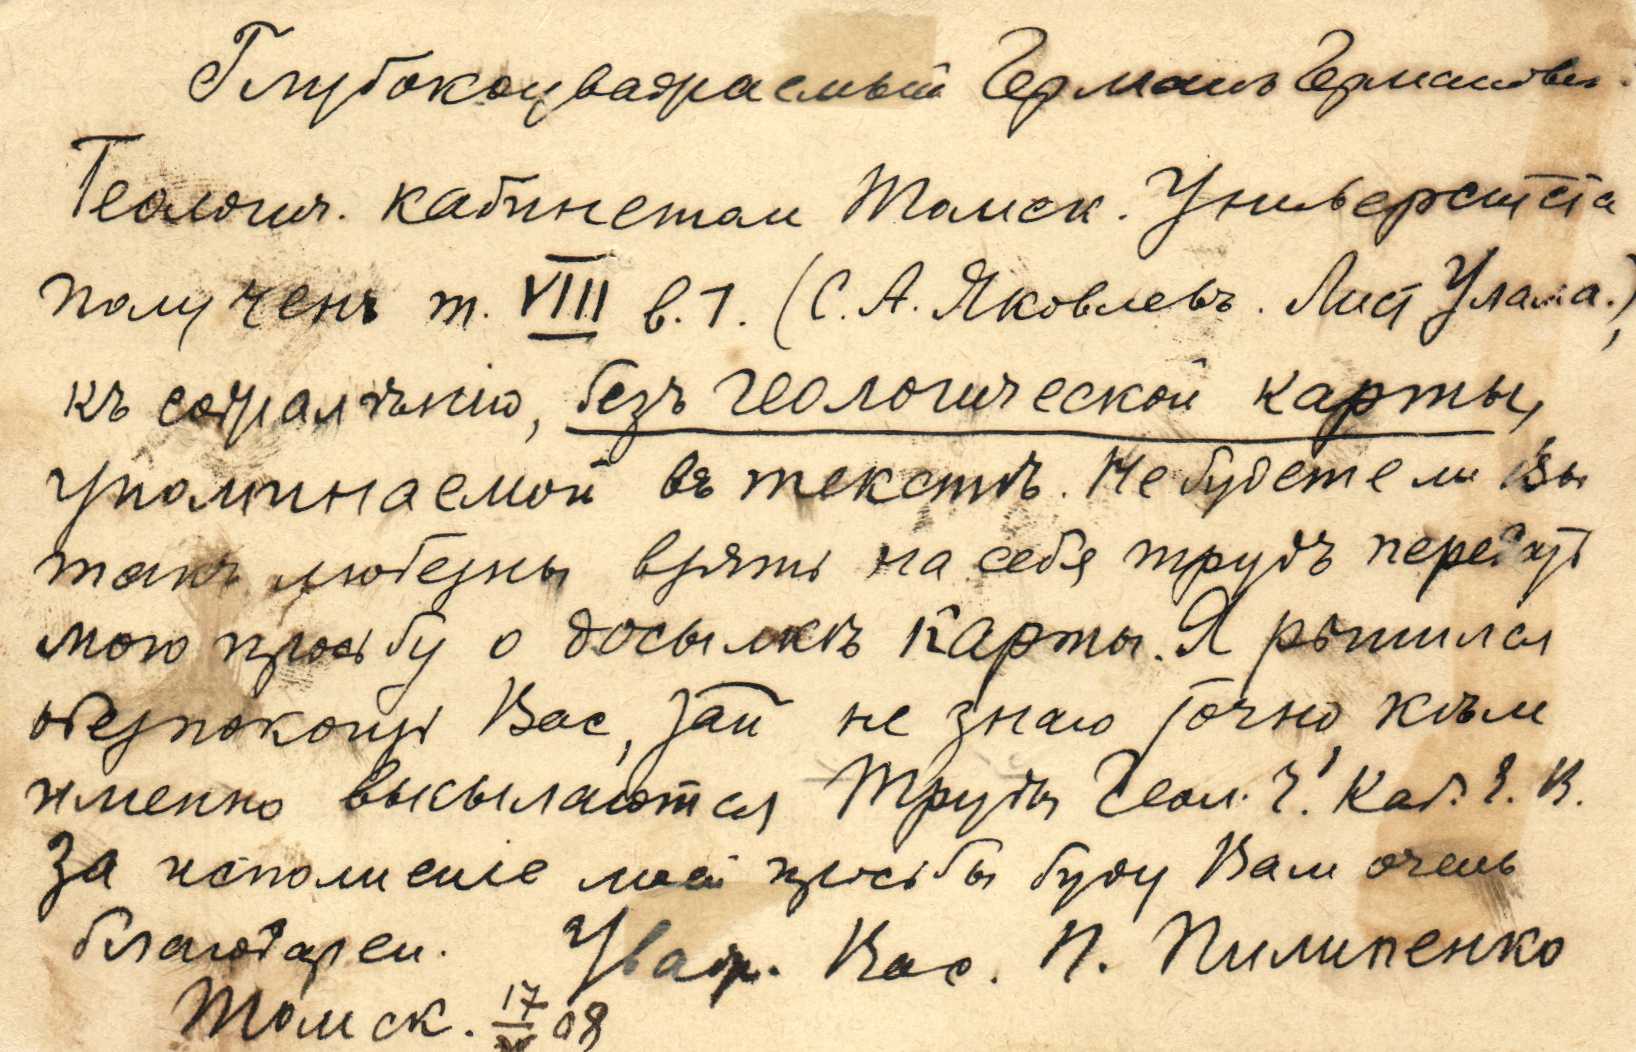 Глубокоуважаемый Германъ Германович.
Геологич. кабинетом Томск. Университета
полученъ т. VIII в. 1. (С. А. Яковлевъ. Лист Улала.),
къ сожалѣнію, безъ геологической карты,
упоминаемой въ текстѣ. Не будете ли Вы
такъ любезны взять на себя трудъ передать
мою просьбу о досылкѣ карты. Я рѣшился
обезпокоить Вас, не знаю точно, кѣм
именно высылаются Труды Геол. Ч. Каб. Е. В.
За исполненіе моей просьбы буду Вам очень
благодарен. Уваж. Вас. П. Пилипенко
Томск. 17 08